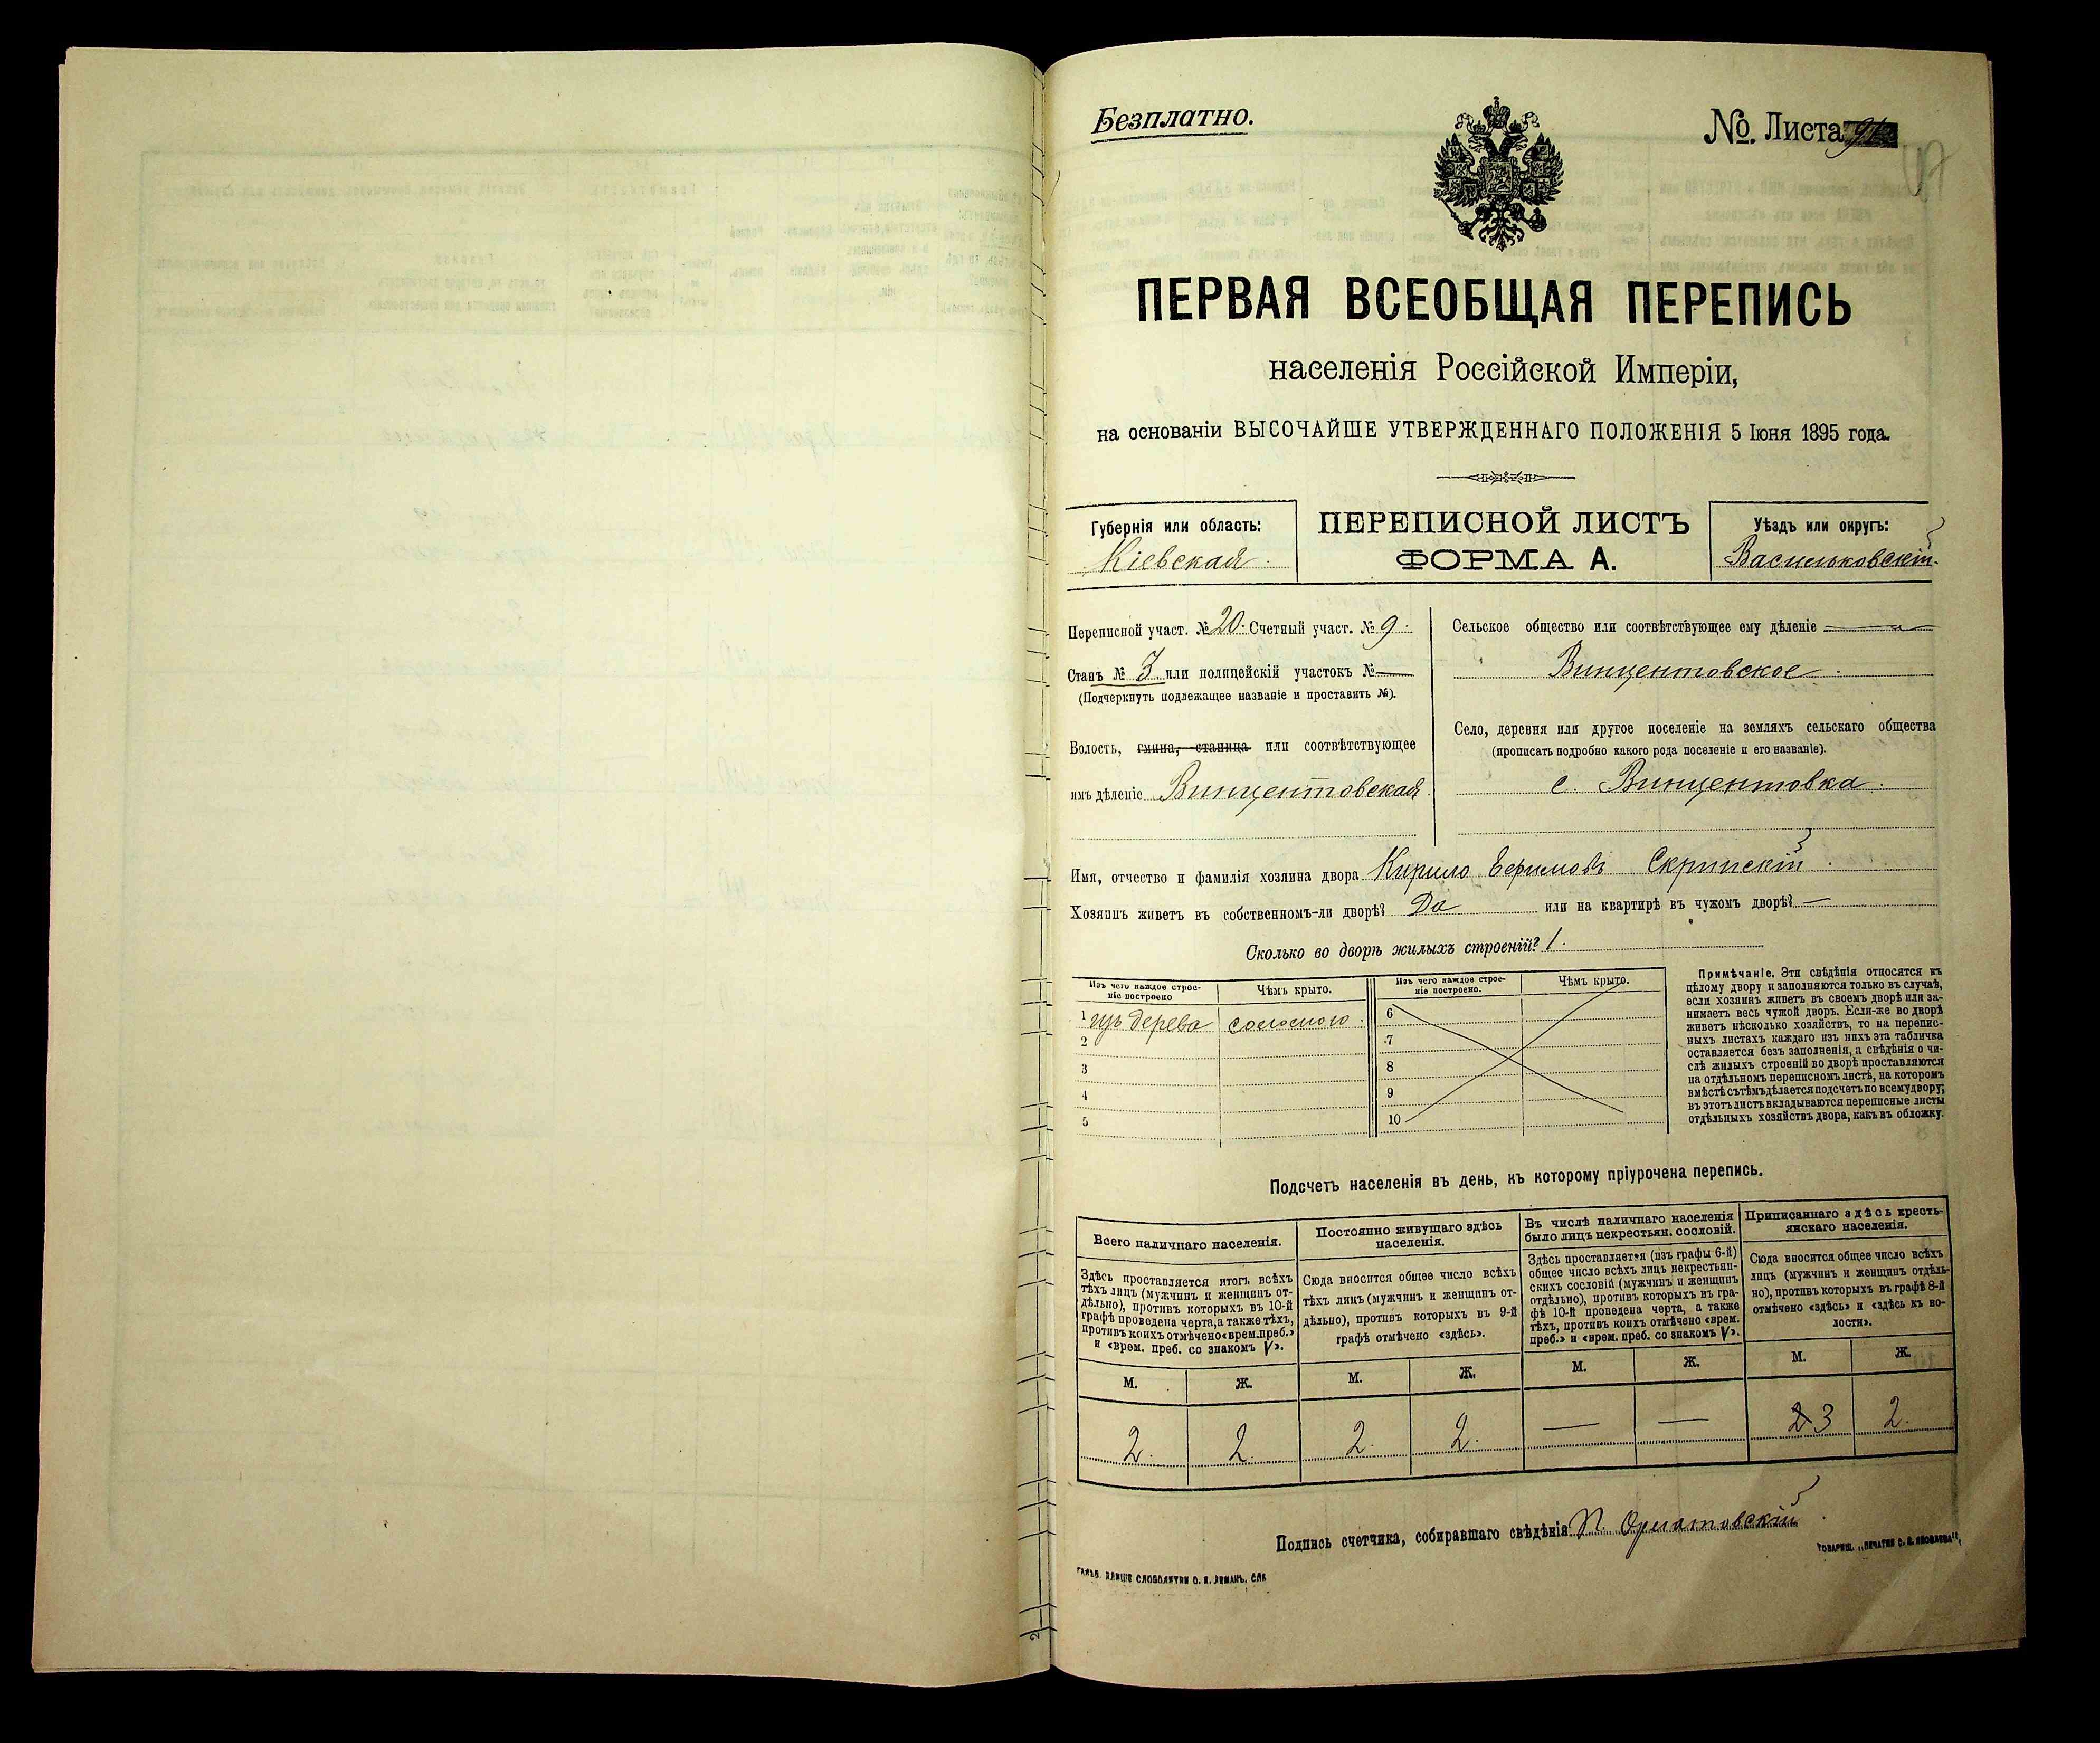 Безплатно.
№. Листа 91
ПЕРВАЯ ВСЕОБЩАЯ ПЕРЕПИСЬ
населенія Россійской Имперіи,
на основаніи ВЫСОЧАЙШЕ УТВЕРЖДЕННАГО ПОЛОЖЕНІЯ 5 Іюня 1895 года.
Губернія или область:
Кіевская.
ПЕРЕПИСНОЙ ЛИСТЪ
ФОРМА А.
Уѣздъ или округъ:
Васильковскій.
Переписной участ. № 20. Счетный участ. № 9.
Станъ № 3. или полицейскій участокъ № —
(Подчеркнуть подлежащее названіе и проставить №).
Волость, гмина, станица или соотвѣтствующее
имъ дѣленіе Винцентовская.
Сельское общество или соотвѣтствующее ему дѣленіе
Винцентовское.
Село, деревня или другое поселеніе на земляхъ сельскаго общества
(прописать подробно какого рода поселеніе и его названіе).
с. Винцентовка.
Имя, отчество и фамилія хозяина двора Кирило Ефимовъ Скрипскій.
Хозяинъ живетъ въ собственномъ-ли дворѣ? Да или на квартирѣ въ чужомъ дворѣ? —
Сколько во дворѣ жилыхъ строеній? 1.
Изъ чего каждое строе-
ніе построено
Чѣмъ крыто.
1 изъ дерева соломою.
2
3
4
5
Изъ чего каждое строе-
ніе построено.
Чѣмъ крыто.
6
7
8
9
10
Примѣчаніе. Эти свѣдѣнія относятся къ
цѣлому двору и заполняются только въ случаѣ,
если хозяинъ живетъ въ своемъ дворѣ или за-
нимаетъ весь чужой дворъ. Если-же во дворѣ
живетъ нѣсколько хозяйствъ, то на перепис-
ныхъ листахъ каждаго изъ нихъ эта табличка
оставляется безъ заполненія, а свѣдѣнія о чи-
слѣ жилыхъ строеній во дворѣ проставляются
на отдѣльномъ переписномъ листѣ, на которомъ
вмѣстѣ съ тѣмъ дѣлается подсчетъ по всему двору;
въ этотъ листъ вкладываются переписные листы
отдѣльныхъ хозяйствъ двора, какъ въ обложку.
Подсчетъ населенія въ день, къ которому пріурочена перепись.
Всего наличнаго населенія.
Здѣсь проставляется итогъ всѣхъ
тѣхъ лицъ (мужчинъ и женщинъ от-
дѣльно), противъ которыхъ въ 10-й
графѣ проведена черта, а также тѣхъ,
противъ коихъ отмѣчено «врем. преб.»
и «врем. преб. со знакомъ V».
М. Ж.
2. 2.
Постоянно живущаго здѣсь
населенія.
Сюда вносится общее число всѣхъ
тѣхъ лицъ (мужчинъ и женщинъ от-
дѣльно), противъ которыхъ въ 9-й
графѣ отмѣчено «здѣсь».
М. Ж.
2. 2.
Въ числѣ наличнаго населенія
было лицъ некрестьян. сословій.
Здѣсь проставляется (изъ графы 6-й)
общее число всѣхъ лицъ некрестьян-
скихъ сословій (мужчинъ и женщинъ
отдѣльно), противъ которыхъ въ гра-
фѣ 10-й проведена черта, а также
тѣхъ, противъ коихъ отмѣчено «врем.
преб.» и «врем. преб. со знакомъ V».
М. Ж.
— —
Приписаннаго здѣсь кресть-
янскаго населенія.
Сюда вносится общее число всѣхъ
лицъ (мужчинъ и женщинъ отдѣль-
но), противъ которыхъ въ графѣ 8-й
отмѣчено «здѣсь» и «здѣсь къ во-
лости».
М. Ж.
2 3 2.
Подпись счетчика, собиравшаго свѣдѣнія П.